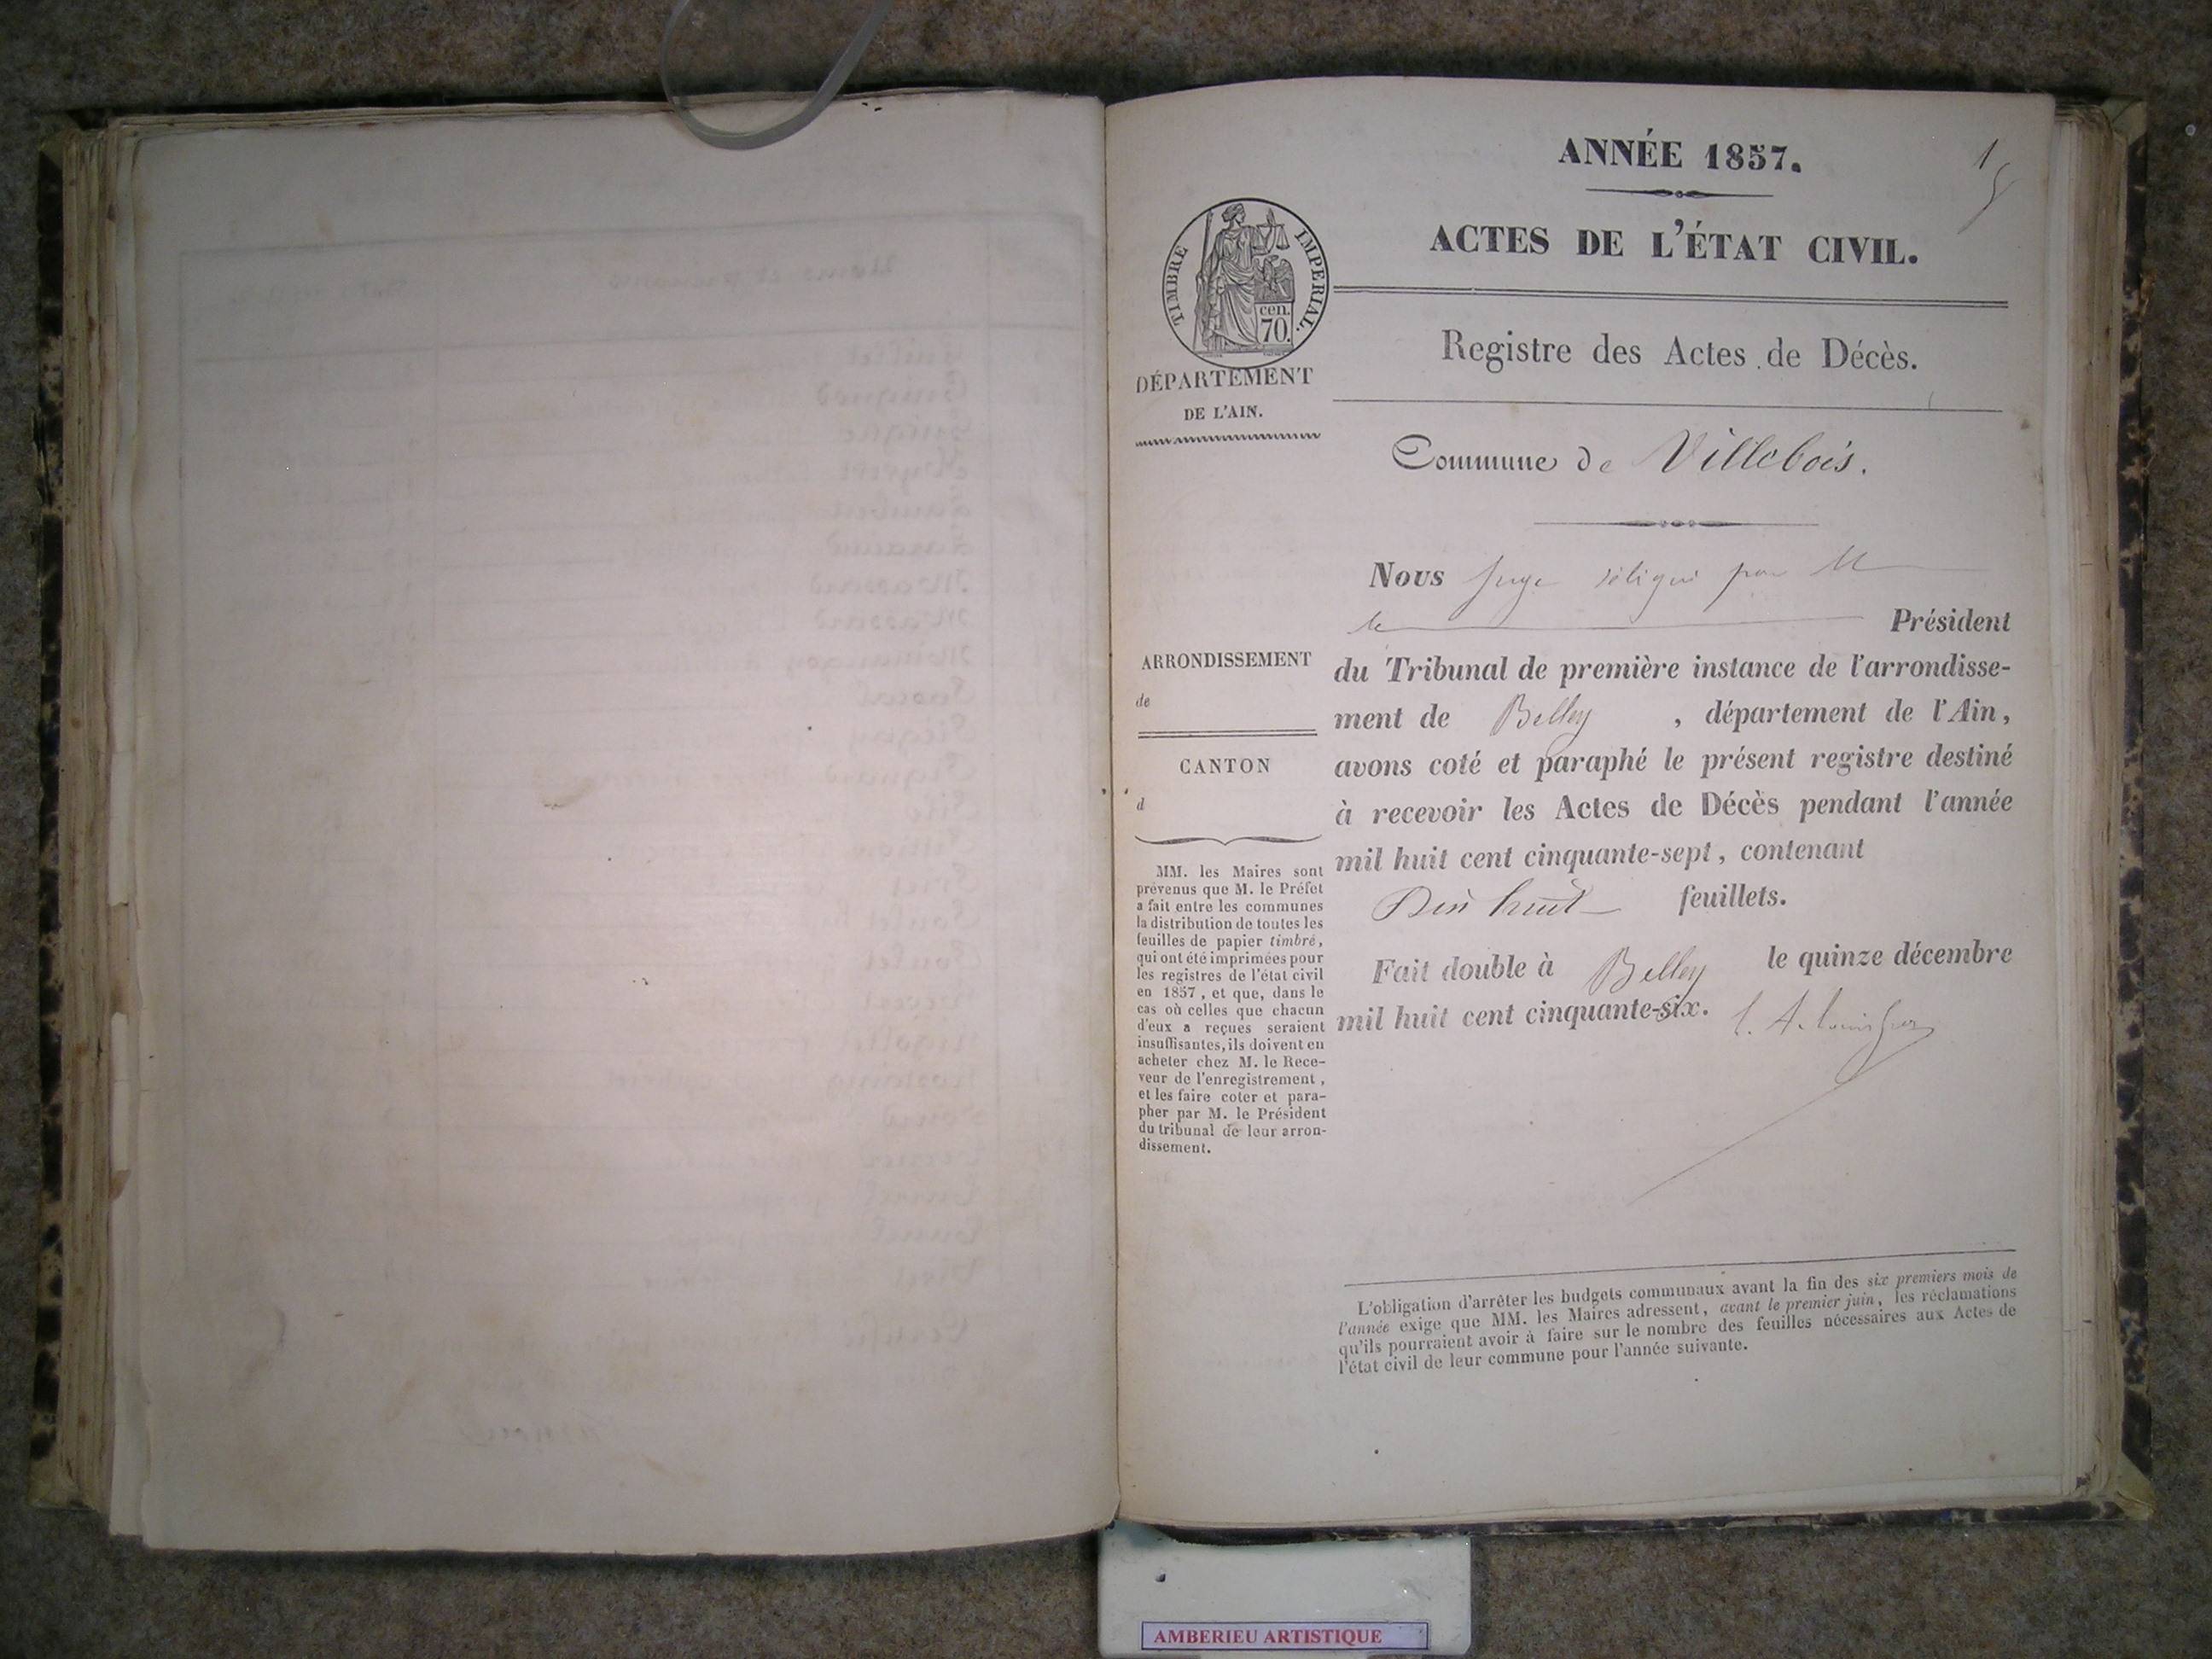 ANNÉE 1857.
1
ACTES DE L'ÉTAT CIVIL.
TIMBRE IMPERIAL.
cen.
70.
Registre des Actes de Décès.
DÉPARTEMENT
DE L'AIN.
Commune de Villebois.
Nous Juge délégué par M
le Président
ARRONDISSEMENT
de
du Tribunal de première instance de l'arrondisse-
ment de Belley, département de l'Ain,
CANTON
d
avons coté et paraphé le présent registre destiné
à recevoir les Actes de Décès pendant l'année
mil huit cent cinquante-sept, contenant
Dix huit feuillets.
Fait double à Belley le quinze décembre
mil huit cent cinquante-six.
MM. les Maires sont
prévenus que M. le Préfet
a fait entre les communes
la distribution de toutes les
feuilles de papier timbré,
qui ont été imprimées pour
les registres de l'état civil
en 1857, et que, dans le
cas où celles que chacun
d'eux a reçues seraient
insuffisantes, ils doivent en
acheter chez M. le Rece-
veur de l'enregistrement,
et les faire coter et para-
pher par M. le Président
du tribunal de leur arron-
dissement.
L'obligation d'arrêter les budgets communaux avant la fin des six premiers mois de
l'année exige que MM. les Maires adressent, avant le premier juin, les réclamations
qu'ils pourraient avoir à faire sur le nombre des feuilles nécessaires aux Actes de
l'état civil de leur commune pour l'année suivante.
AMBERIEU ARTISTIQUE